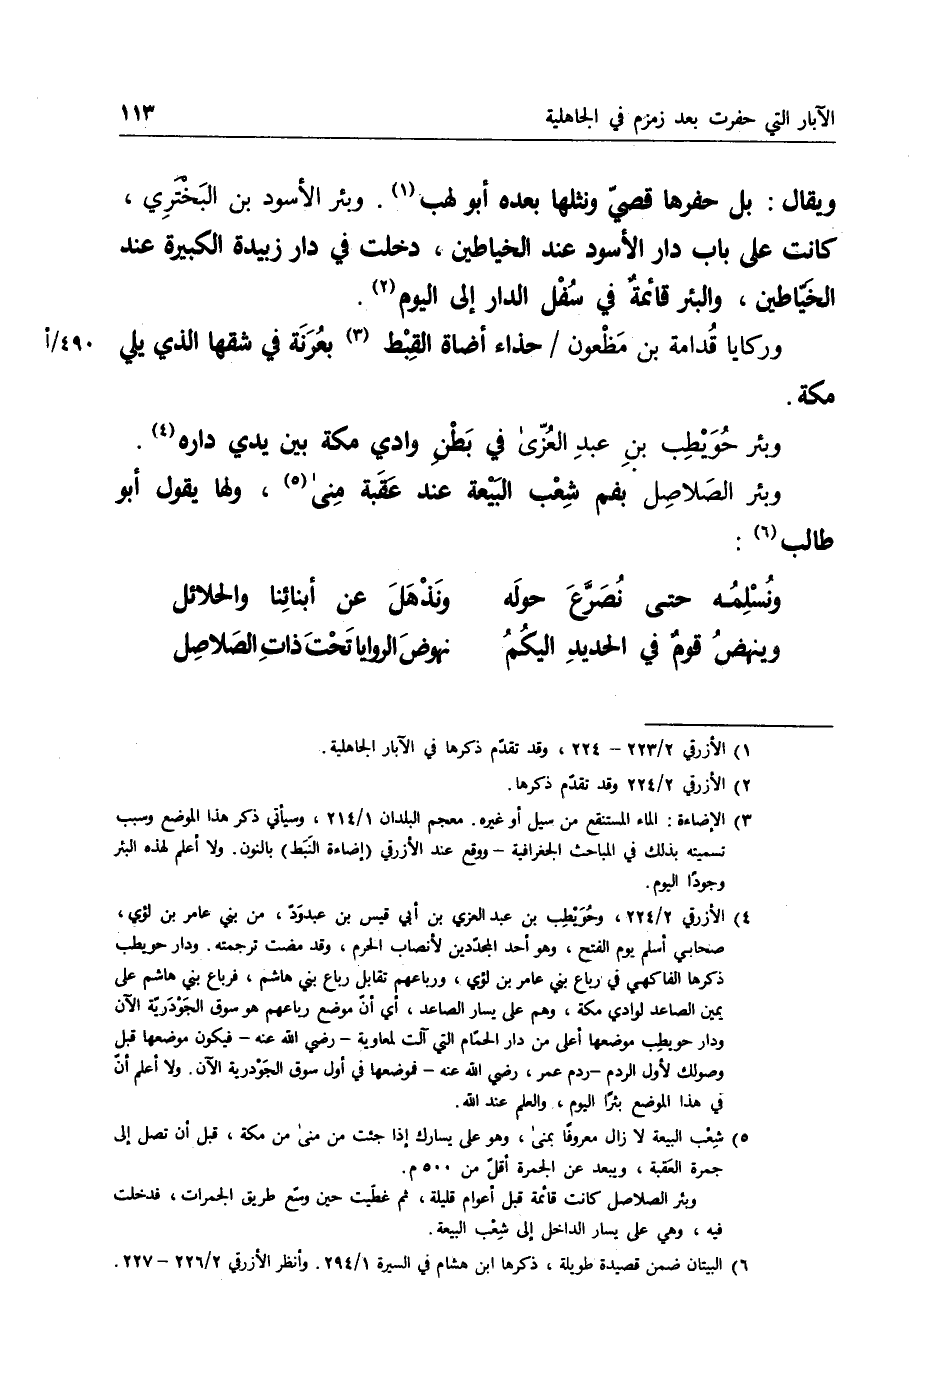 الآبار التي حفرت بعد زمزم في الجاهلية ١١٣
ويقال : بل حفرها قصيّ ونثلها بعده أبو لهب(١) . وبئر الأسود بن البَخْتَري ،
كانت على باب دار الأسود عند الخياطين ، دخلت في دار زبيدة الكبيرة عند
الخَيّاطين ، والبئر قائمةٌ في سُفْل الدار إلى اليوم(٢) .
وركايا قُدامة بن مَظْعون / حذاء أضاة القِبْط (٣) بعُرَنَة في شقها الذي يلي ٤٩٠/أ
مكة .
وبئر حُوَيْطِب بنِ عبدِ العُزّىٰ في بَطْنِ وادي مكة بين يدي داره(٤) .
وبئر الصَلاصِل بفم شِعْب البَيْعة عند عَقَبة مِنىٰ(٥) ، ولها يقول أبو
طالب(٦) :
ونُسْلِمُـه حتـى نُصَرَّعَ حولَه ونَذْهَلَ عن أبنائِنا والحلائل
وينهضُ قومٌ في الحديدِ اليكُمُ نهوضَ الروايا تَحْتَ ذاتِ الصَلاصِل
١) الأزرقي ٢٢٣/٢ – ٢٢٤ ، وقد تقدّم ذكرها في الآبار الجاهلية .
٢) الأزرقي ٢٢٤/٢ وقد تقدّم ذكرها.
٣) الإضاءة : الماء المستنقع من سيل أو غيره. معجم البلدان ٢١٤/١ ، وسيأتي ذكر هذا الموضع وسبب
تسميته بذلك في المباحث الجغرافية – ووقع عند الأزرقي (إضاءة النَبَط) بالنون. ولا أعلم لهذه البئر
وجودًا اليوم.
٤) الأزرقي ٢٢٤/٢ ، وحُوَيْطِب بن عبد العزي بن أبي قيس بن عبدوَدّ ، من بني عامر بن لؤي ،
صحابي أسلم يوم الفتح ، وهو أحد المجدّدين لأنصاب الحرم ، وقد مضت ترجمته . ودار حويطب
ذكرها الفاكهي في رباع بني عامر بن لؤي ، ورباعهم تقابل رباع بني هاشم ، فرباع بني هاشم على
يمين الصاعد لوادي مكة ، وهم على يسار الصاعد ، أي أنّ موضع رباعهم هو سوق الجَوْدَريّة الآن
ودار حويطب موضعها أعلى من دار الحمّام التي آلت لمعاوية – رضي الله عنه – فيكون موضعها قبل
وصولك لأول الردم –ردم عمر ، رضي الله عنه – فموضعها في أول سوق الجَوْدرية الآن. ولا أعلم أنّ
في هذا الموضع بئرًا اليوم ، والعلم عند الله.
٥) شِعْب البيعة لا زال معروفًا بمنىٰ ، وهو على يسارك إذا جئت من منىٰ من مكة ، قبل أن تصل إلى
جمرة العَقبة ، ويبعد عن الجمرة أقلّ من ٥٠٠م.
وبئر الصلاصل كانت قائمة قبل أعوام قليلة ، ثم غطّيت حين وسّع طريق الجمرات ، فدخلت
فيه ، وهي على يسار الداخل إلى شِعْب البيعة.
٦) البيتان ضمن قصيدة طويلة ، ذكرها ابن هشام في السيرة ٢٩٤/١. وأنظر الأزرقي ٢٢٦/٢ – ٢٢٧ .